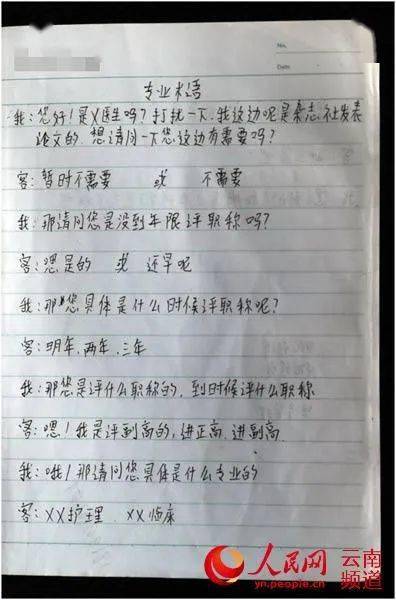 No.
Date
专业术语
我：您好！是X医生吗？打扰一下，我这边呢是杂志社发表
论文的，想请问一下您这边有需要吗？
客：暂时不需要 或 不需要
我：那请问您是没到年限评职称吗？
客：嗯是的 或 还早呢
我：那您具体是什么时候评职称呢？
客：明年、两年、三年
我：那您是评什么职称的，到时候评什么职称
客：嗯！我是评副高的，进正高，进副高
我：哦！那请问您具体是什么专业的
客：XX护理 XX临床
人民网 云南
频道
yn.people.cn